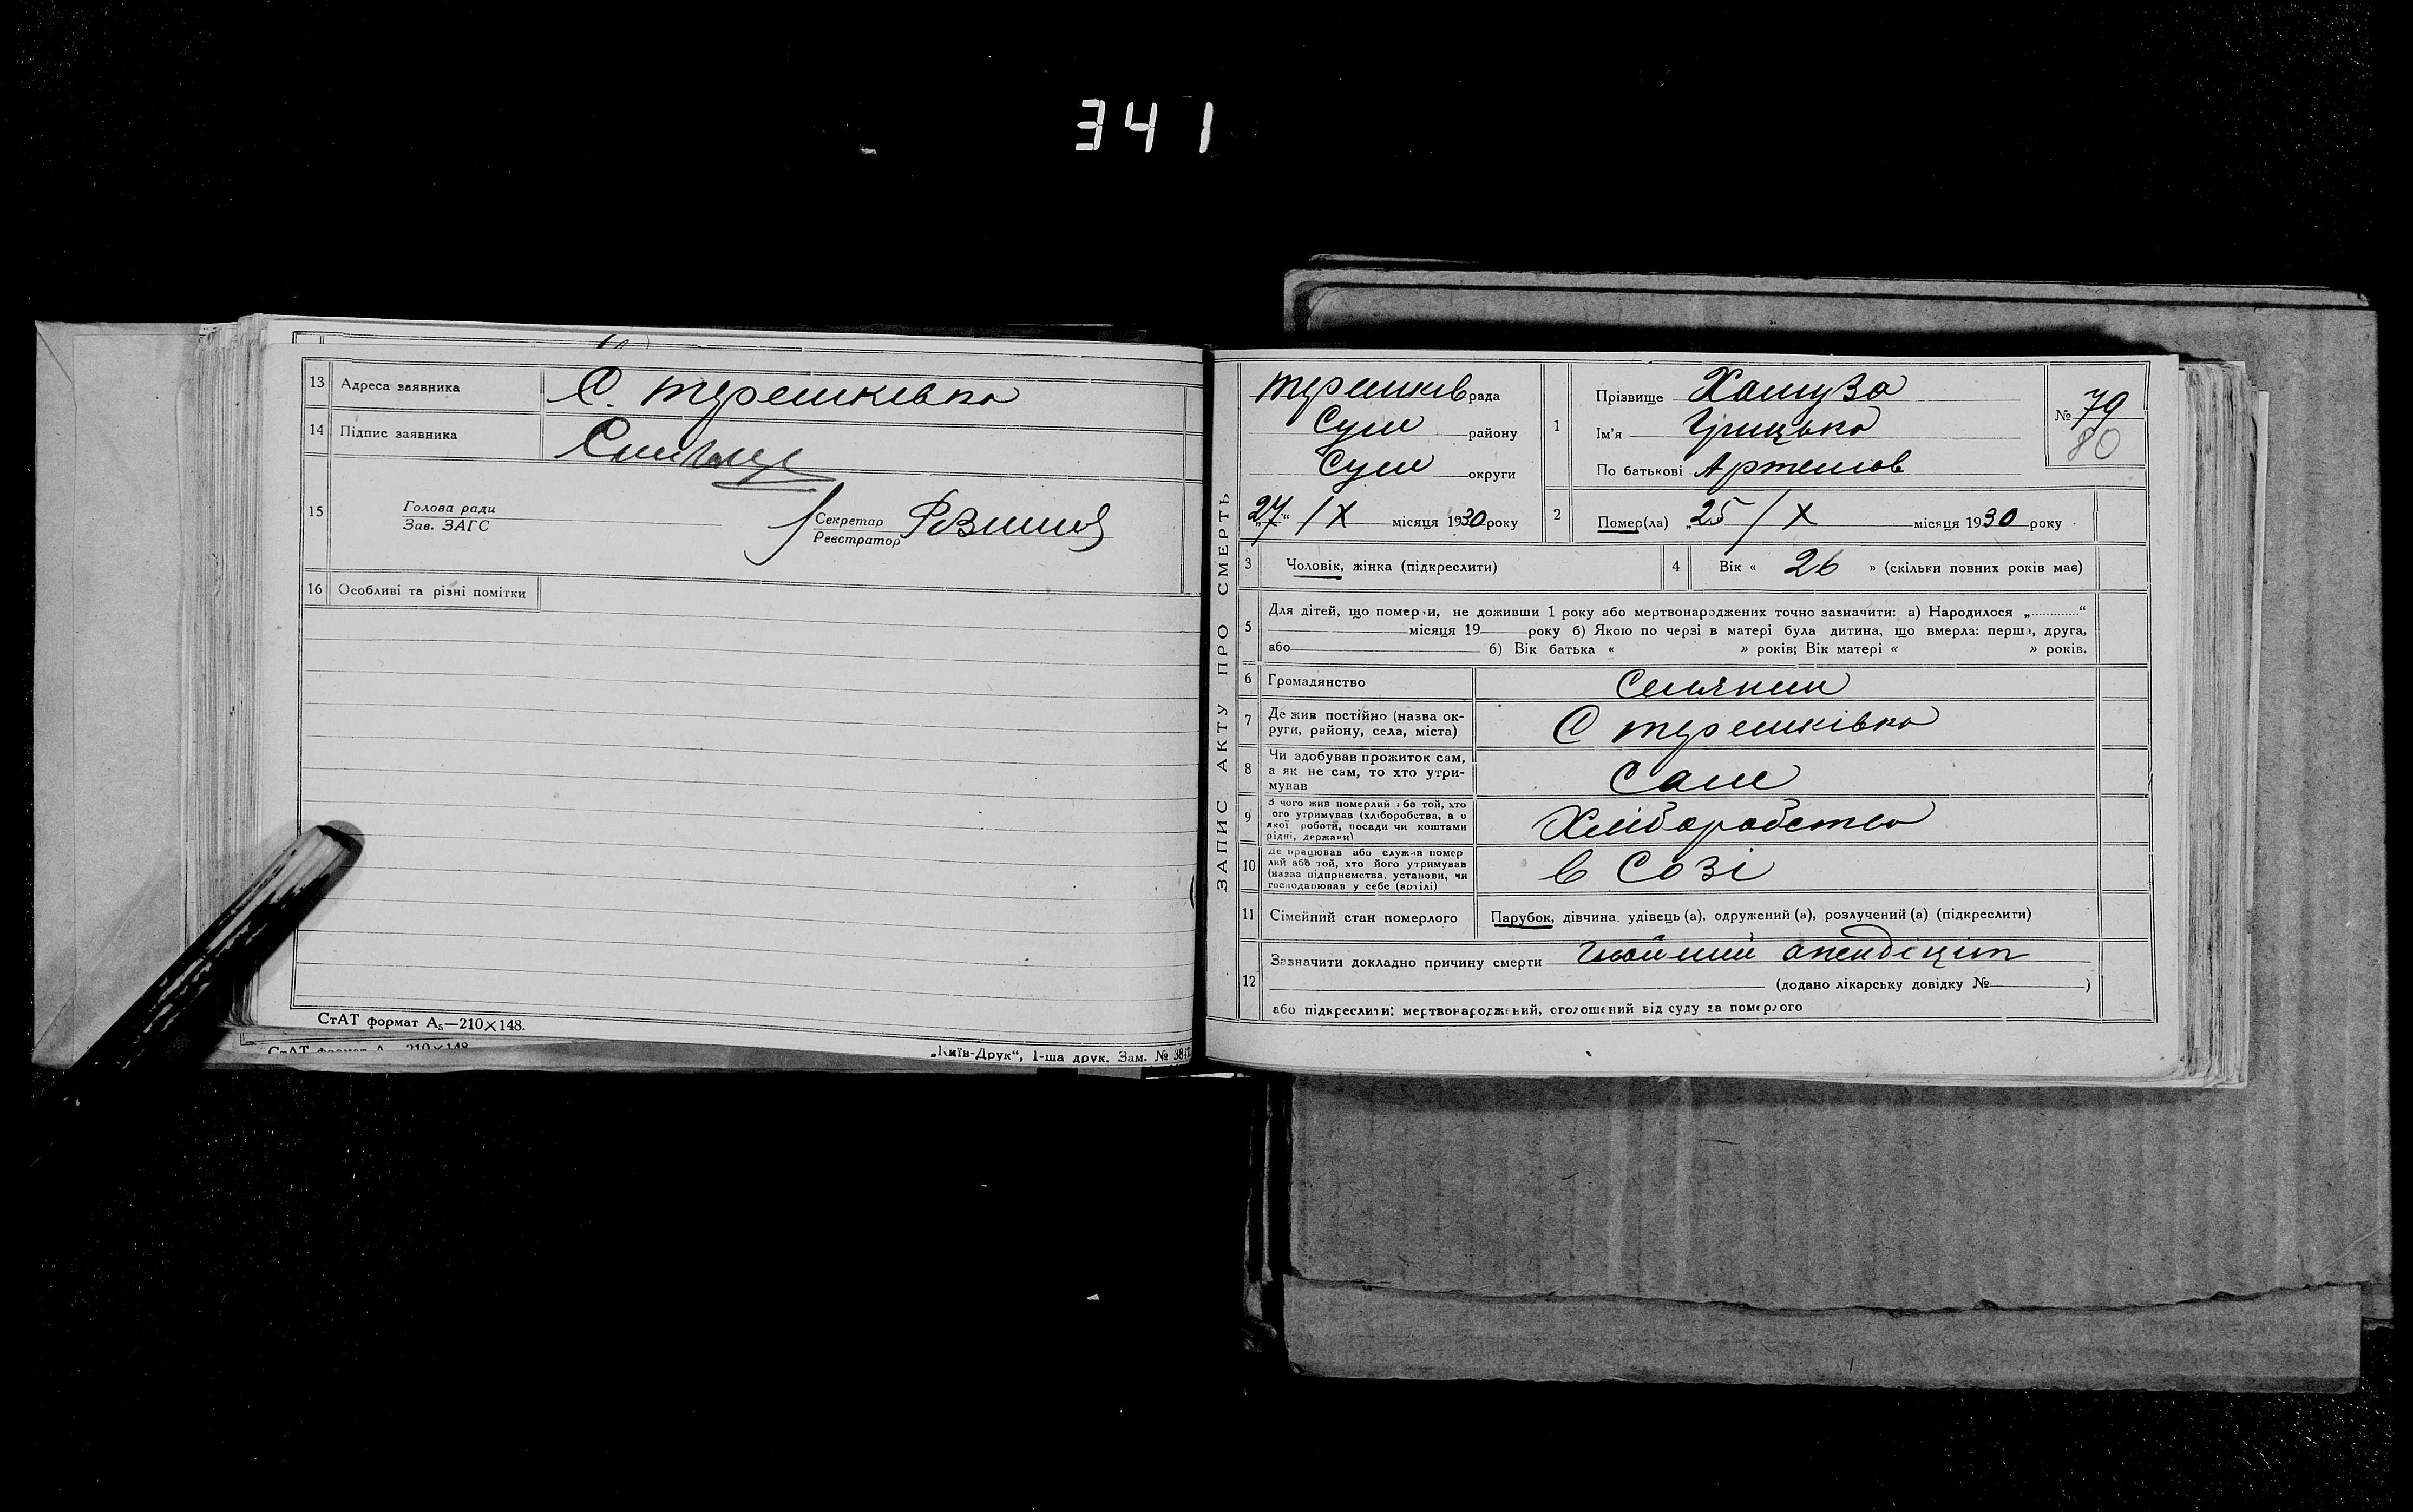 341
13 Адреса заявника С. терешківка
14 Підпис заявника
15 Голова ради
Зав. ЗАГС
Секретар
Реєстратор
16 Особливі та різні помітки
СтАТ формат А₅—210×148.
СтАТ формат А 210×148
„Київ-Друк“, 1-ша друк. Зам. №
ЗАПИС АКТУ ПРО СМЕРТЬ
терешків рада
Сум району
Сум округи
„27“ /X місяця 1930 року
1 Прізвище
Ім'я Грицько
По батькові Артемов
№ 79
80
2 Помер(ла) „25 / X місяця 1930 року
3 Чоловік, жінка (підкреслити)
4 Вік « 26 » (скільки повних років має)
5 Для дітей, що померли, не доживши 1 року або мертвонароджених точно зазначити: а) Народилося „ “
місяця 19 року б) Якою по черзі в матері була дитина, що вмерла: перша, друга,
або б) Вік батька « » років; Вік матері « » років.
6 Громадянство Селянин
7 Де жив постійно (назва ок-
руги, району, села, міста) С терешківка
8 Чи здобував прожиток сам,
а як не сам, то хто утри-
мував Сам
9 З чого жив померлий або той, хто
ого утримував (хліборобства, а о
якої роботи, посади чи коштами
рідні, держави) Хліборобство
10 Де працював або служив помер
лий або той, хто його утримував
(назва підприємства, установи, чи
господарював у себе (артілі) в Созі
11 Сімейний стан померлого Парубок, дівчина, удівець (а), одружений (а), розлучений (а) (підкреслити)
12 Зазначити докладно причину смерти Гнойний апендіцит
(додано лікарську довідку № )
або підкреслити: мертвонароджений, оголошений від суду за померлого